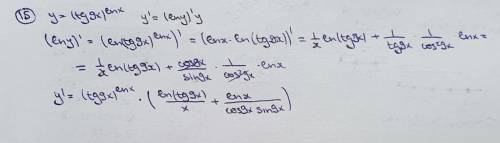 15 y=(tg9x)^lnx y'=(lny)'y
(lny)'=(ln(tg9x)^lnx)'=(lnx·ln(tg9x))'=1/x ln(tg9x)+1/tg9x·1/cos²9x lnx=
=1/x ln(tg9x)+cos9x/sin9x·1/cos²9x·lnx
y'=(tg9x)^lnx·(ln(tg9x)/x+lnx/cos9x sin9x)